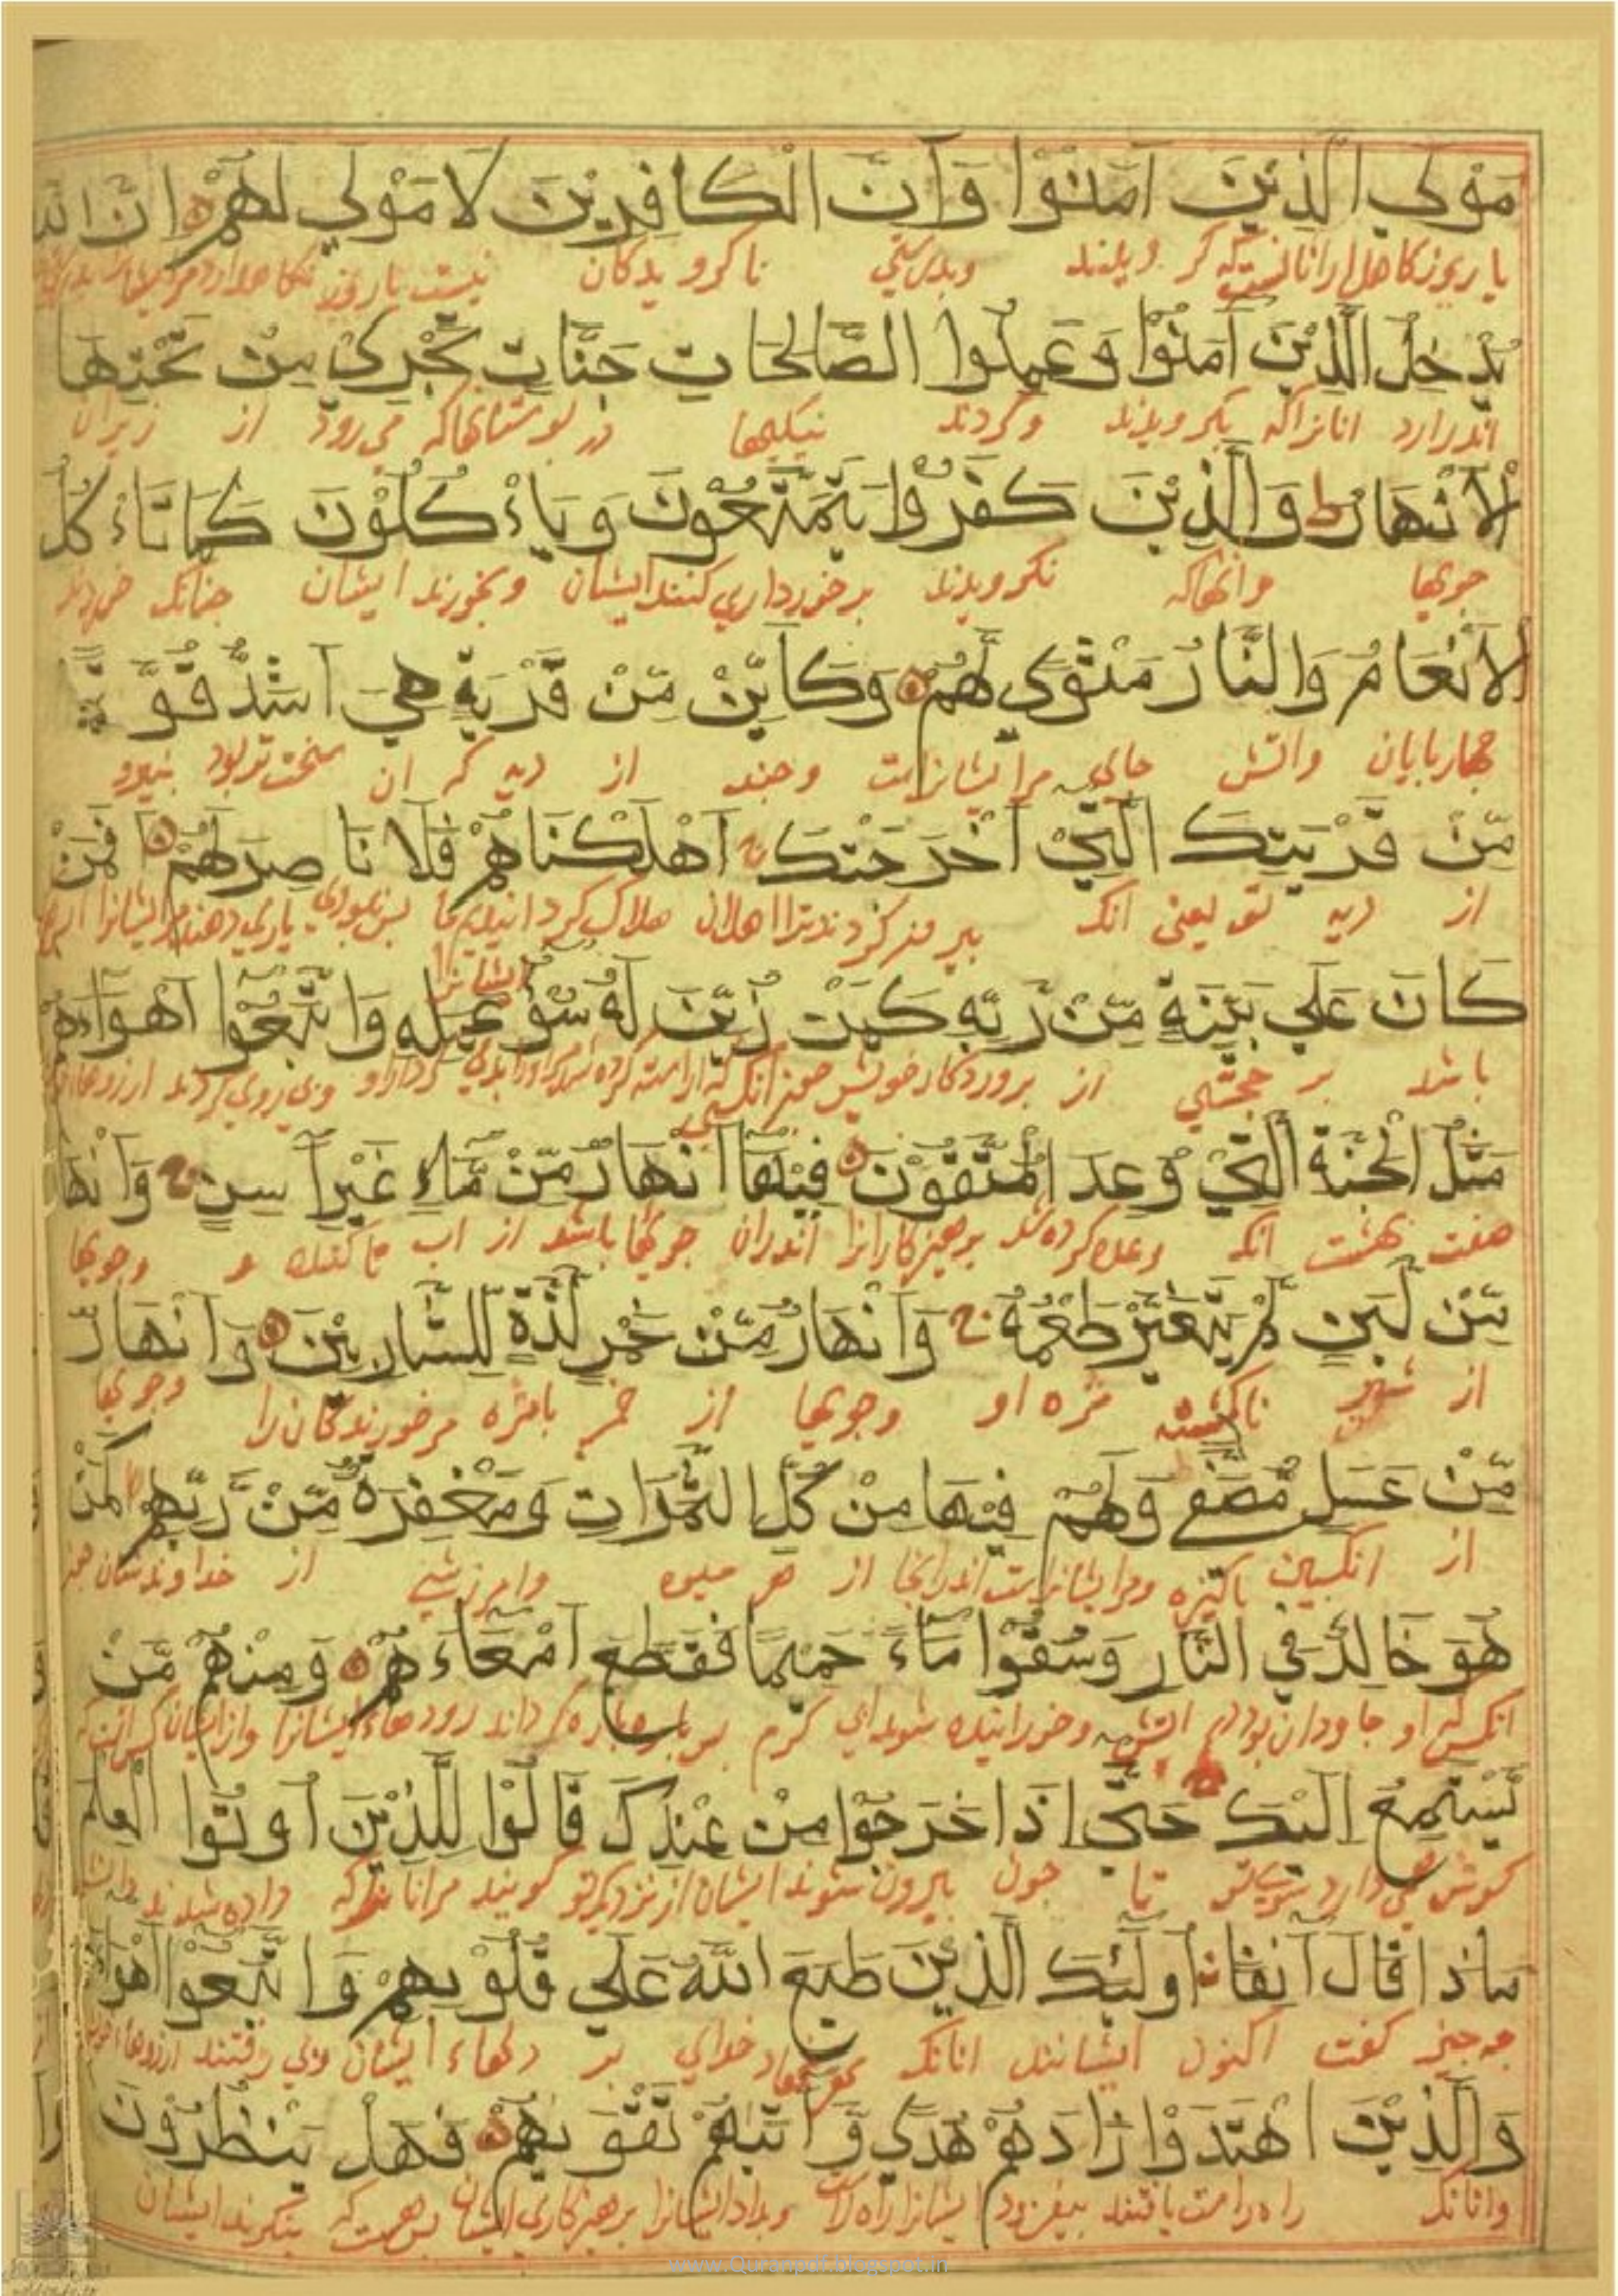 مَوْلَى الَّذِينَ آمَنُوا وَأَنَّ الْكَافِرِينَ لَا مَوْلَى لَهُمْ إِنَّ اللَّهَ
وبدرستی ناکرویدکان نیست
يُدْخِلُ الَّذِينَ آمَنُوا وَعَمِلُوا الصَّالِحَاتِ جَنَّاتٍ تَجْرِي مِنْ تَحْتِهَا
اندرارد انانراکه بکرویدند وکردند نیکیها در بوستانهاکه می رود از زیران
الْأَنْهَارُ ط وَالَّذِينَ كَفَرُوا يَتَمَتَّعُونَ وَيَأْكُلُونَ كَمَا تَأْكُلُ
جویها وانهاکه نکرویدند برخورداری کنند ایشان وبخورند ایشان جنانک خورند
الْأَنْعَامُ وَالنَّارُ مَثْوًى لَهُمْ وَكَأَيِّنْ مِّنْ قَرْيَةٍ هِيَ أَشَدُّ قُوَّةً
جهاربایان واتش جای مرایشانراست وجند از دیه که ان سخت تر بود بنیرو
مِّنْ قَرْيَتِكَ الَّتِي أَخْرَجَتْكَ ج أَهْلَكْنَاهُمْ فَلَا نَاصِرَ لَهُمْ أَفَمَنْ
از دیه تو یعنی انک بیرون کردند ترا اهل ان هلاک کردانیدیم ما یاری دهنده مر ایشانرا
ایشانرا
كَانَ عَلَى بَيِّنَةٍ مِّنْ رَبِّهِ كَمَنْ زُيِّنَ لَهُ سُوءُ عَمَلِهِ وَاتَّبَعُوا أَهْوَاءَهُمْ
باشد بر حجتی از بروردکار خویش کردار او وبی روی کردند ارزوهاء
مَثَلُ الْجَنَّةِ الَّتِي وُعِدَ الْمُتَّقُونَ فِيهَا أَنْهَارٌ مِّنْ مَّاءٍ غَيْرِ آسِنٍ ج وَأَنْهَارٌ
صفت بهشت انک وعده کرده شد برهیزکارانرا اندران جویها باشد از اب نا کنده وجویها
مِّنْ لَبَنٍ لَمْ يَتَغَيَّرْ طَعْمُهُ ج وَأَنْهَارٌ مِّنْ خَمْرٍ لَذَّةٍ لِلشَّارِبِينَ وَأَنْهَارٌ
از شیر ناکشته مزه او وجویها از خمر بامزه مر خورندکان را وجویها
مِّنْ عَسَلٍ مُصَفًّى وَلَهُمْ فِيهَا مِنْ كُلِّ الثَّمَرَاتِ وَمَغْفِرَةٌ مِّنْ رَّبِّهِمْ كَمَنْ
از انکبین باکیزه ومرایشانراست اندرانجا از هر میوه وامرزشی از خداوندشان
هُوَ خَالِدٌ فِي النَّارِ وَسُقُوا مَاءً حَمِيمًا فَقَطَّعَ أَمْعَاءَهُمْ وَمِنْهُمْ مَّنْ
انکس که او جاودان بود در اتش وخورانیده شوند ابی کرم باره باره کرداند رودهاء ایشانرا وازایشان
يَسْتَمِعُ إِلَيْكَ حَتَّى إِذَا خَرَجُوا مِنْ عِنْدِكَ قَالُوا لِلَّذِينَ أُوتُوا الْعِلْمَ
کوش می دارد بسوی تو تا جون بیرون شوند ایشان از نزدیک تو کویند مرانانرا که داده شدند دانش
مَاذَا قَالَ آنِفًا أُولَئِكَ الَّذِينَ طَبَعَ اللَّهُ عَلَى قُلُوبِهِمْ وَاتَّبَعُوا أَهْوَاءَهُمْ
جه جیز کفت اکنون ایشانند انانک مهر نهاد خدای بر دلهاء ایشان وبی رفتند
وَالَّذِينَ اهْتَدَوْا زَادَهُمْ هُدًى وَآتَاهُمْ تَقْوَاهُمْ فَهَلْ يَنْظُرُونَ
وانانک راه راست یافتند بیفزود ایشانرا راه راست وبداد ایشانرا برهیزکاری ایشان
www.Quranpdf.blogspot.in